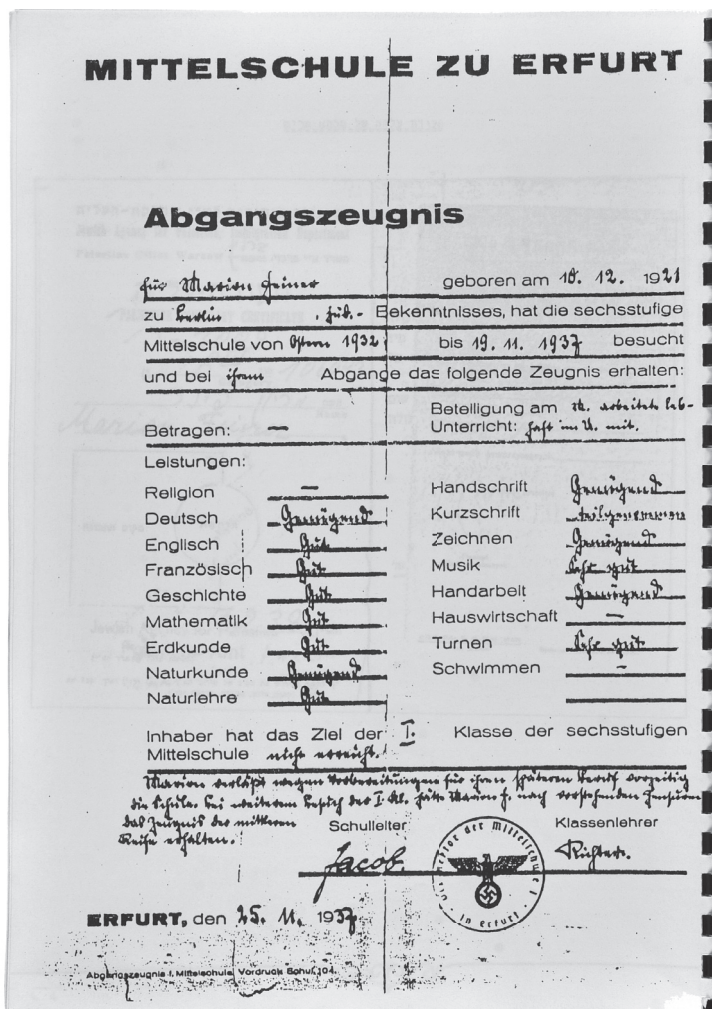 MITTELSCHULE ZU ERFURT
Abgangszeugnis
für Marion Feiner geboren am 10. 12. 1921
zu Berlin, jüd.- Bekenntnisses, hat die sechsstufige
Mittelschule von Ostern 1932 bis 19. 11. 1937 besucht
und bei ihrem Abgange das folgende Zeugnis erhalten:
Betragen: — Beteiligung am M. arbeitete leb-
Unterricht: haft im U. mit.
Leistungen:
Religion —
Deutsch Genügend
Englisch Gut
Französisch Gut
Geschichte Gut
Mathematik Gut
Erdkunde Gut
Naturkunde Genügend
Naturlehre Gut
Handschrift Genügend
Kurzschrift teilgenommen
Zeichnen Genügend
Musik Sehr gut
Handarbeit Genügend
Hauswirtschaft —
Turnen Sehr gut
Schwimmen —
Inhaber hat das Ziel der I. Klasse der sechsstufigen
Mittelschule nicht erreicht.
Marion verläßt wegen Vorbereitungen für ihren späteren Beruf vorzeitig
die Schule. Bei weiterem Besuch der I. Kl. hätte Marion F. nach vorstehenden Zensuren
das Zeugnis der mittleren
Reife erhalten.
Schulleiter Klassenlehrer
Jacob. Richter.
Der Rektor der Mittelschule I
in Erfurt
ERFURT, den 25. 11. 1937
Abgangszeugnis f. Mittelschule, Vordruck Schul. 104.